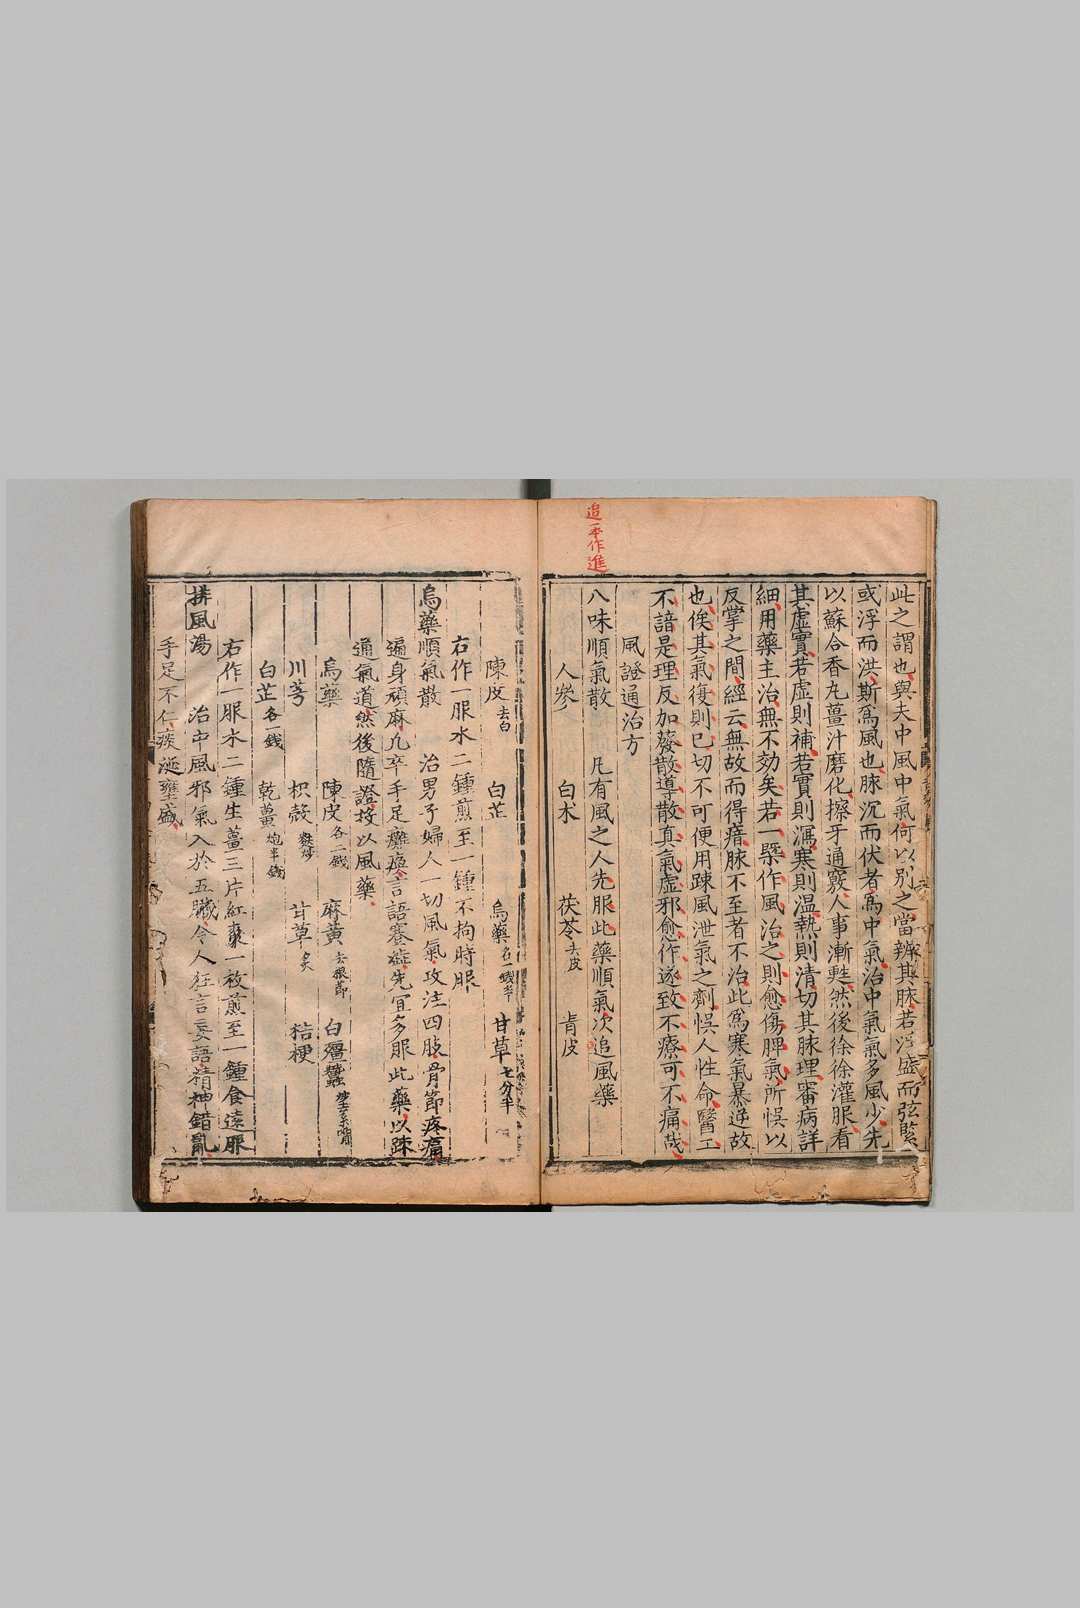 追一本作進
此之謂也與夫中風中氣何以別之當辨其脉若浮盛而弦緊
或浮而洪斯爲風也脉沉而伏者爲中氣治中氣氣多風少先
以蘇合香丸薑汁磨化擦牙通竅人事漸甦然後徐徐灌服看
其虛實若虛則補若實則瀉寒則温熱則清切其脉理審病詳
細用藥主治無不効矣若一槩作風治之則愈傷脾氣所悞以
反掌之間經云無故而得瘖脉不至者不治此爲寒氣暴逆故
也俟其氣復則已切不可便用踈風泄氣之劑悞人性命醫工
不諳是理反加發散導散真氣虛邪愈作遂致不療可不痛哉
風證通治方
八味順氣散 凡有風之人先服此藥順氣次追風藥
人參 白术 茯苓去皮 青皮
陳皮去白 白芷 烏藥各一錢半 甘草七分半
右作一服水二鍾煎至一鍾不拘時服
烏藥順氣散 治男子婦人一切風氣攻注四肢骨節疼痛
遍身頑麻凡卒手足癱瘓言語蹇澁先宜多服此藥以踈
通氣道然後隨證投以風藥
烏藥 陳皮各二錢 麻黃去根節 白殭蠶炒去絲嘴
川芎 枳殼麩炒 甘草炙 桔梗
白芷各一錢 乾薑炮半錢
右作一服水二鍾生薑三片紅棗一枚煎至一鍾食遠服
排風湯 治中風邪氣入於五臟令人狂言妄語精神錯亂
手足不仁痰涎壅盛